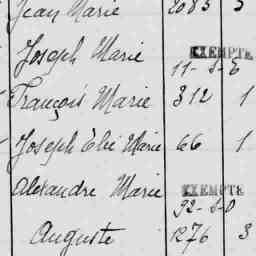 Jean Marie 2085 3
Joseph Marie EXEMPTE
11-S-E
François Marie 312 1
Joseph Elie Marie 66 1
Alexandre Marie EXEMPTE
92-S-D
Auguste 1276 3